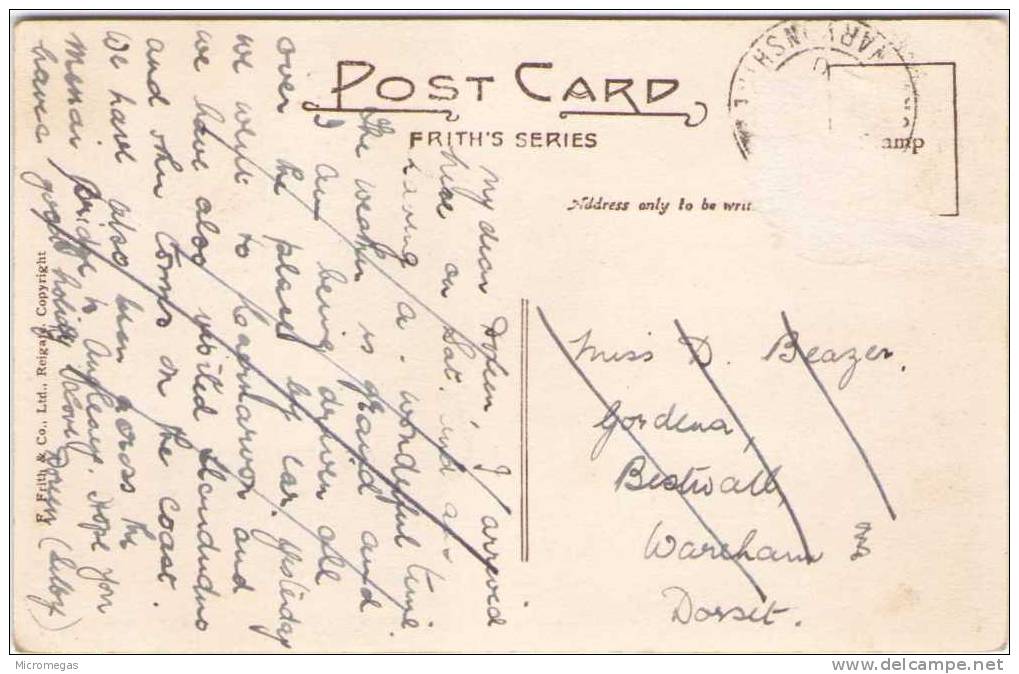 POST CARD
FRITH'S SERIES
ARVONSH
amp
Address only to be writ
My dear Doreen, I arrived
here on Sat. and am
having a wonderful time.
The weather is grand and
I am being driven all
over the place by car. Yesterday
we went to Caernarvon and
we have also visited Llandudno
and other towns on the coast.
We have also been across the
Menai bridge to Anglesey. Hope you
have good holiday. Love (Silby)
Miss D. Beazer.
Gordena,
Bestwall,
Wareham
Dorset.
F. Frith & Co., Ltd., Reigate Copyright
Micromegas
delcampe.net